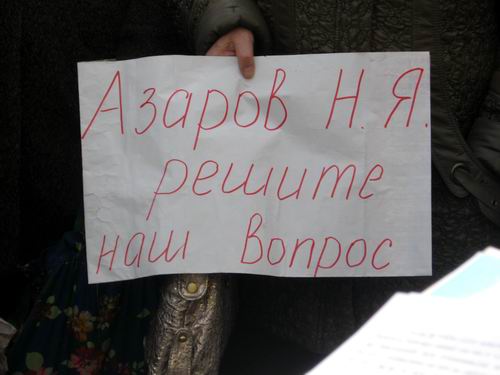 Азаров Н. Я.
решите
наш вопрос